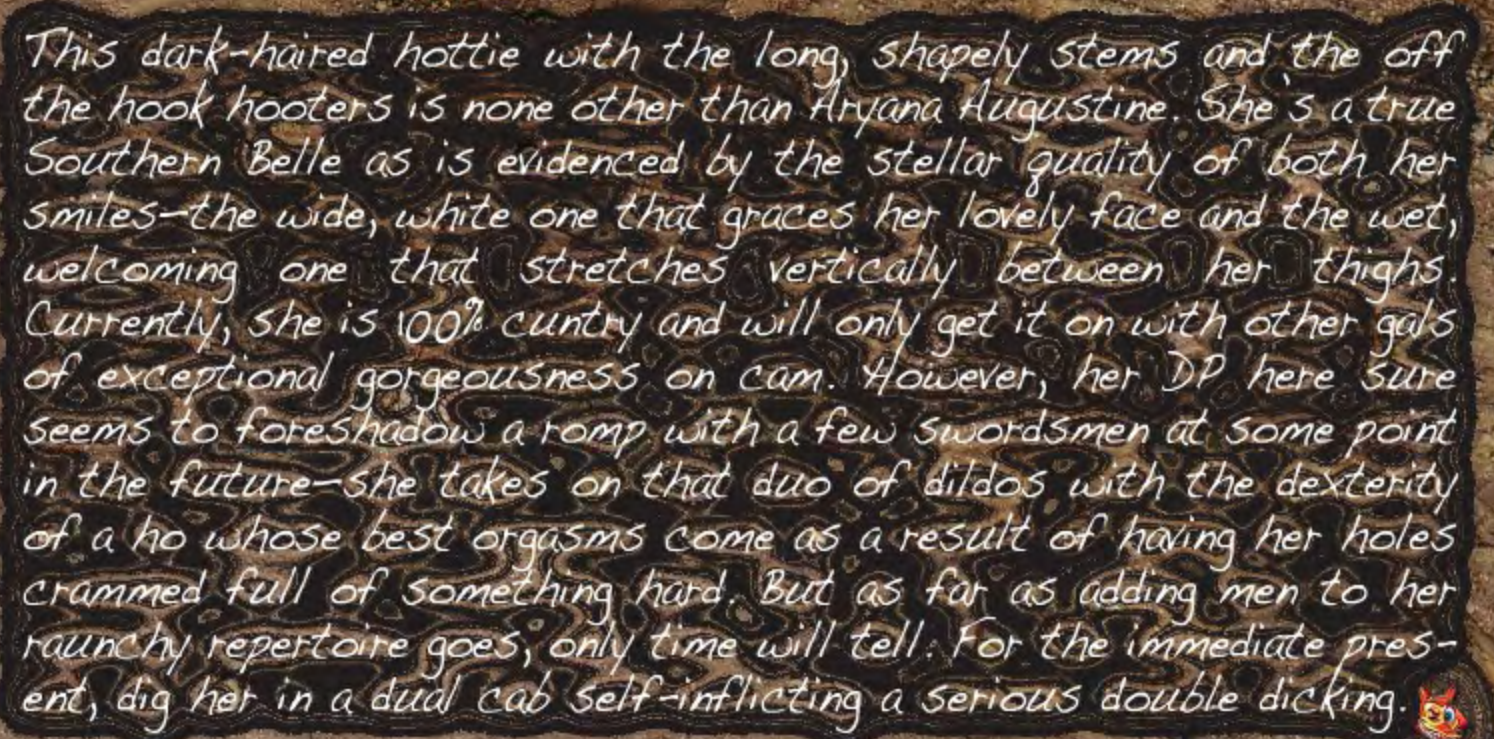 This dark-haired hottie with the long, shapely stems and the off
the hook hooters is none other than Aryana Augustine. She's a true
Southern Belle as is evidenced by the stellar quality of both her
smiles—the wide, white one that graces her lovely face and the wet,
welcoming one that stretches vertically between her thighs.
Currently, she is 100% cuntry and will only get it on with other gals
of exceptional gorgeousness on cam. However, her DP here sure
seems to foreshadow a romp with a few swordsmen at some point
in the future—she takes on that duo of dildos with the dexterity
of a ho whose best orgasms come as a result of having her holes
crammed full of something hard. But as far as adding men to her
raunchy repertoire goes, only time will tell. For the immediate pres-
ent, dig her in a dual cab self-inflicting a serious double dicking.